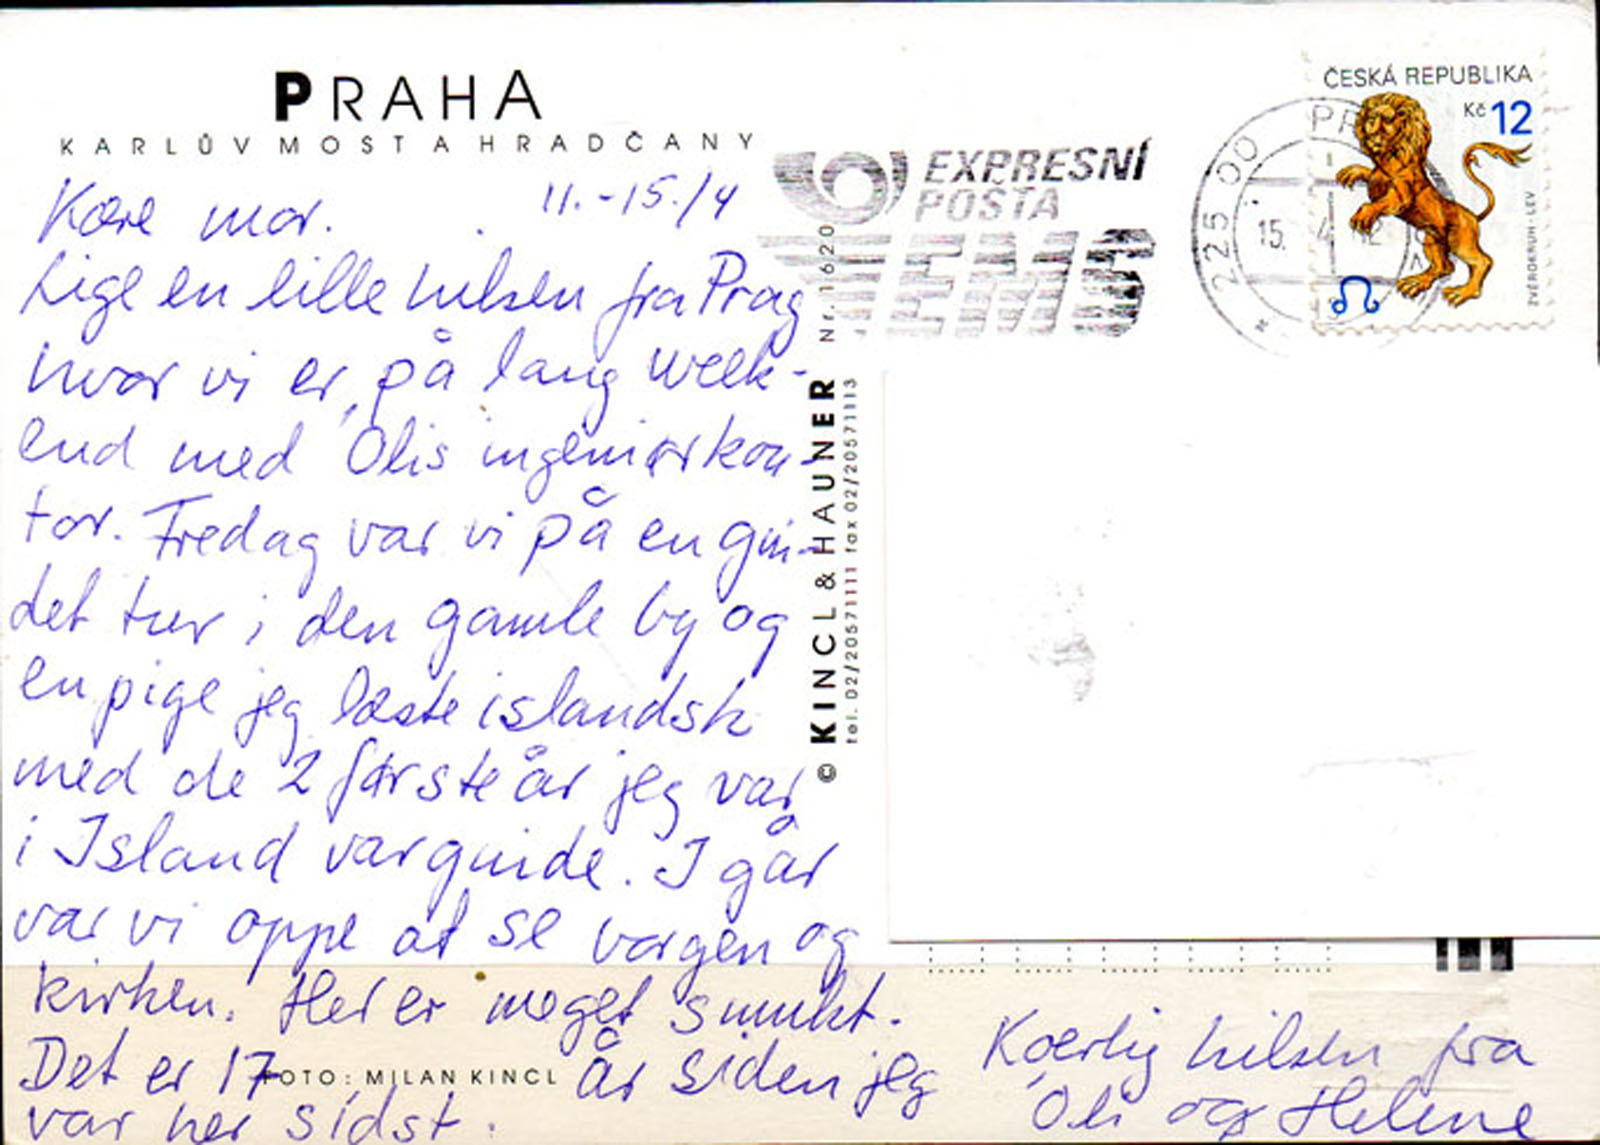 PRAHA
KARLŮV MOST A HRADČANY
Kære mor. 11.-15./4
Lige en lille hilsen fra Prag
hvor vi er på lang week-
end med Ólis ingeniørkon-
tor. Fredag var vi på en gui-
det tur i den gamle by og
en pige jeg læste islandsk
med de 2 første år jeg var
i Island var guide. I går
var vi oppe at se borgen og
kirken. Her er meget smukt.
Det er 17 år siden jeg
var her sidst.
FOTO: MILAN KINCL
Kærlig hilsen fra
Óli og Helene
© KINCL & HAUNER Nr. 1620
tel. 02/20571111 fax 02/20571113
EXPRESNÍ
POŠTA
EMS
225 00
15. 4
ČESKÁ REPUBLIKA
Kč 12
ZVĚROKRUH - LEV